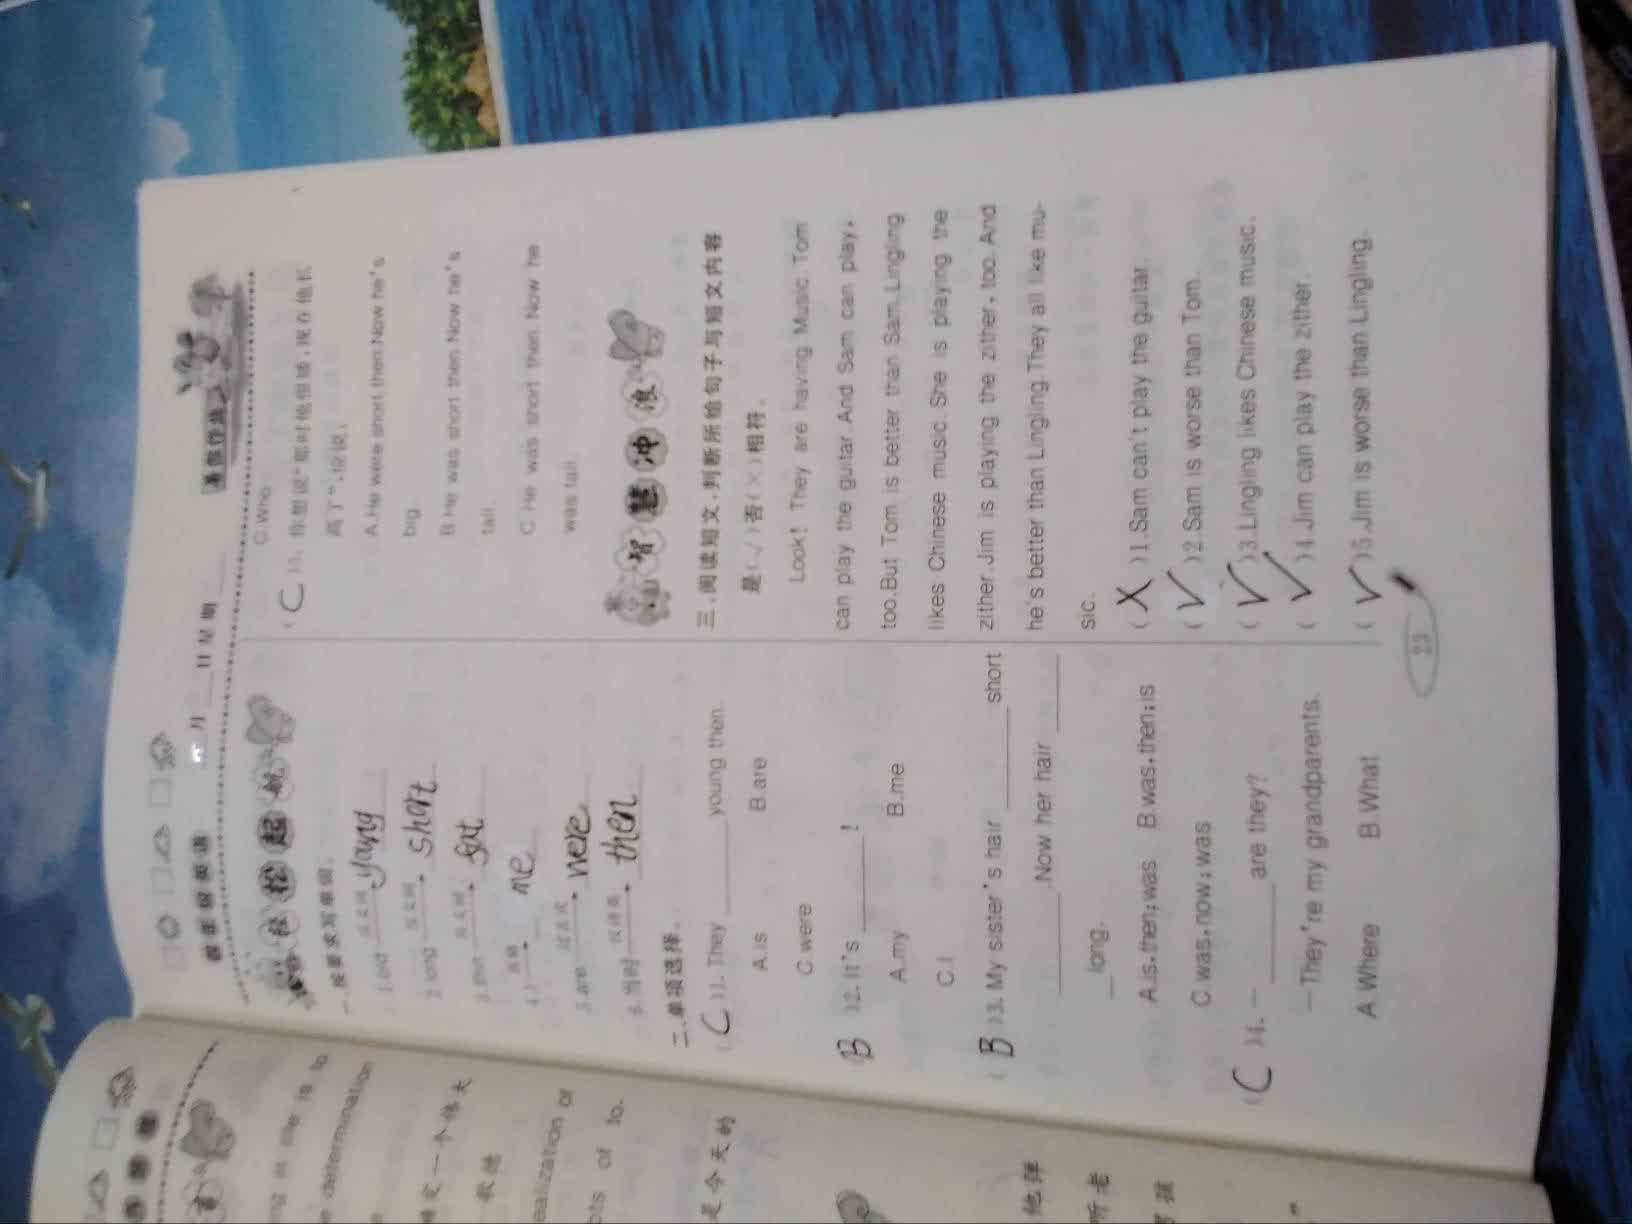 月 日 星期
暑假作业
轻松起航
一、按要求写单词。
1.old 反义词 yang
2.long 反义词 short
3.thin 反义词 fat
4.I me
5.are 过去式 were
6.当时 then
二、单项选择。
( C )1.They ______ young then.
A.is B.are
C.were
B )2.It's ______!
A.my B.me
C.I
( B )3.My sister's hair ______ short
______.Now her hair ______
__ long.
A.is,then;was B.was,then;is
C.was,now;was
( C )4.— ______ are they?
—They're my grandparents.
A.Where B.What
C.Who
( C )5.你想说"那时他很矮,现在他长
高了",应说:
A.He were short then.Now he's
big.
B.He was short then.Now he's
tall.
C.He was short then.Now he
was tall.
智慧冲浪
三、阅读短文,判断所给句子与短文内容
是(√)否(×)相符。
Look! They are having Music. Tom
can play the guitar. And Sam can play,
too.But Tom is better than Sam.Lingling
likes Chinese music. She is playing the
zither.Jim is playing the zither, too. And
he's better than Lingling.They all like mu-
sic.
( X )1.Sam can't play the guitar.
( √ )2.Sam is worse than Tom.
( √ )3.Lingling likes Chinese music.
( √ )4.Jim can play the zither.
( √ )5.Jim is worse than Lingling.
23
determination
一个伟大
ealization of
ots of to-
是今天的
他样
所老